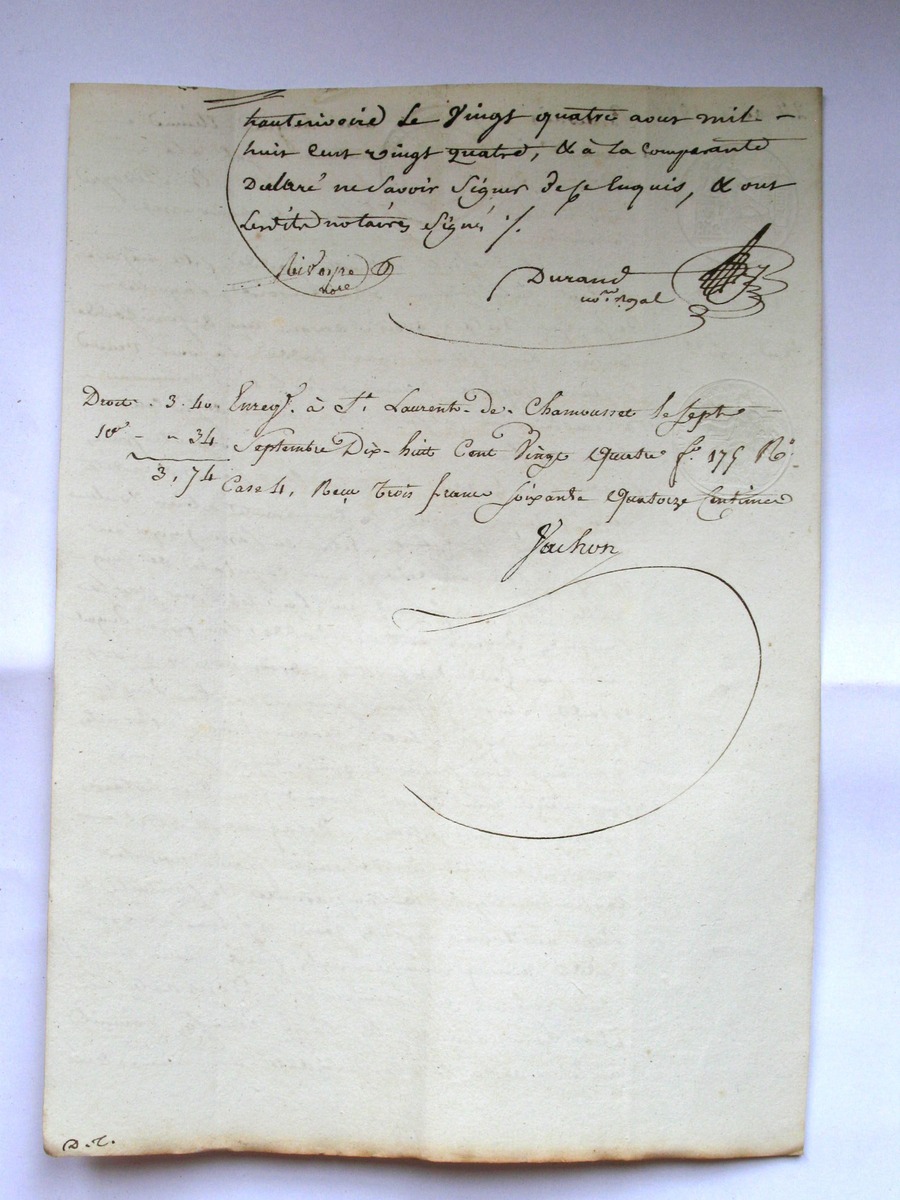 hauterivoire le vingt quatre aout mil-
huit cent vingt quatre, & a la comparante
Declaré ne savoir signer de ce enquis, & ont
lesdits notaires signé ./.
nore
Durand
no.re royal
Droit . 3. 40 Enreg.t à St. Laurent-de-Chamousset le sept
10e - " 34 Septembre Dix-huit Cent Vingt Quatre f.o 175 R.o
3,74 Case 4, Reçu trois francs soixante Quatorze Centimes
Vachon
D.r.